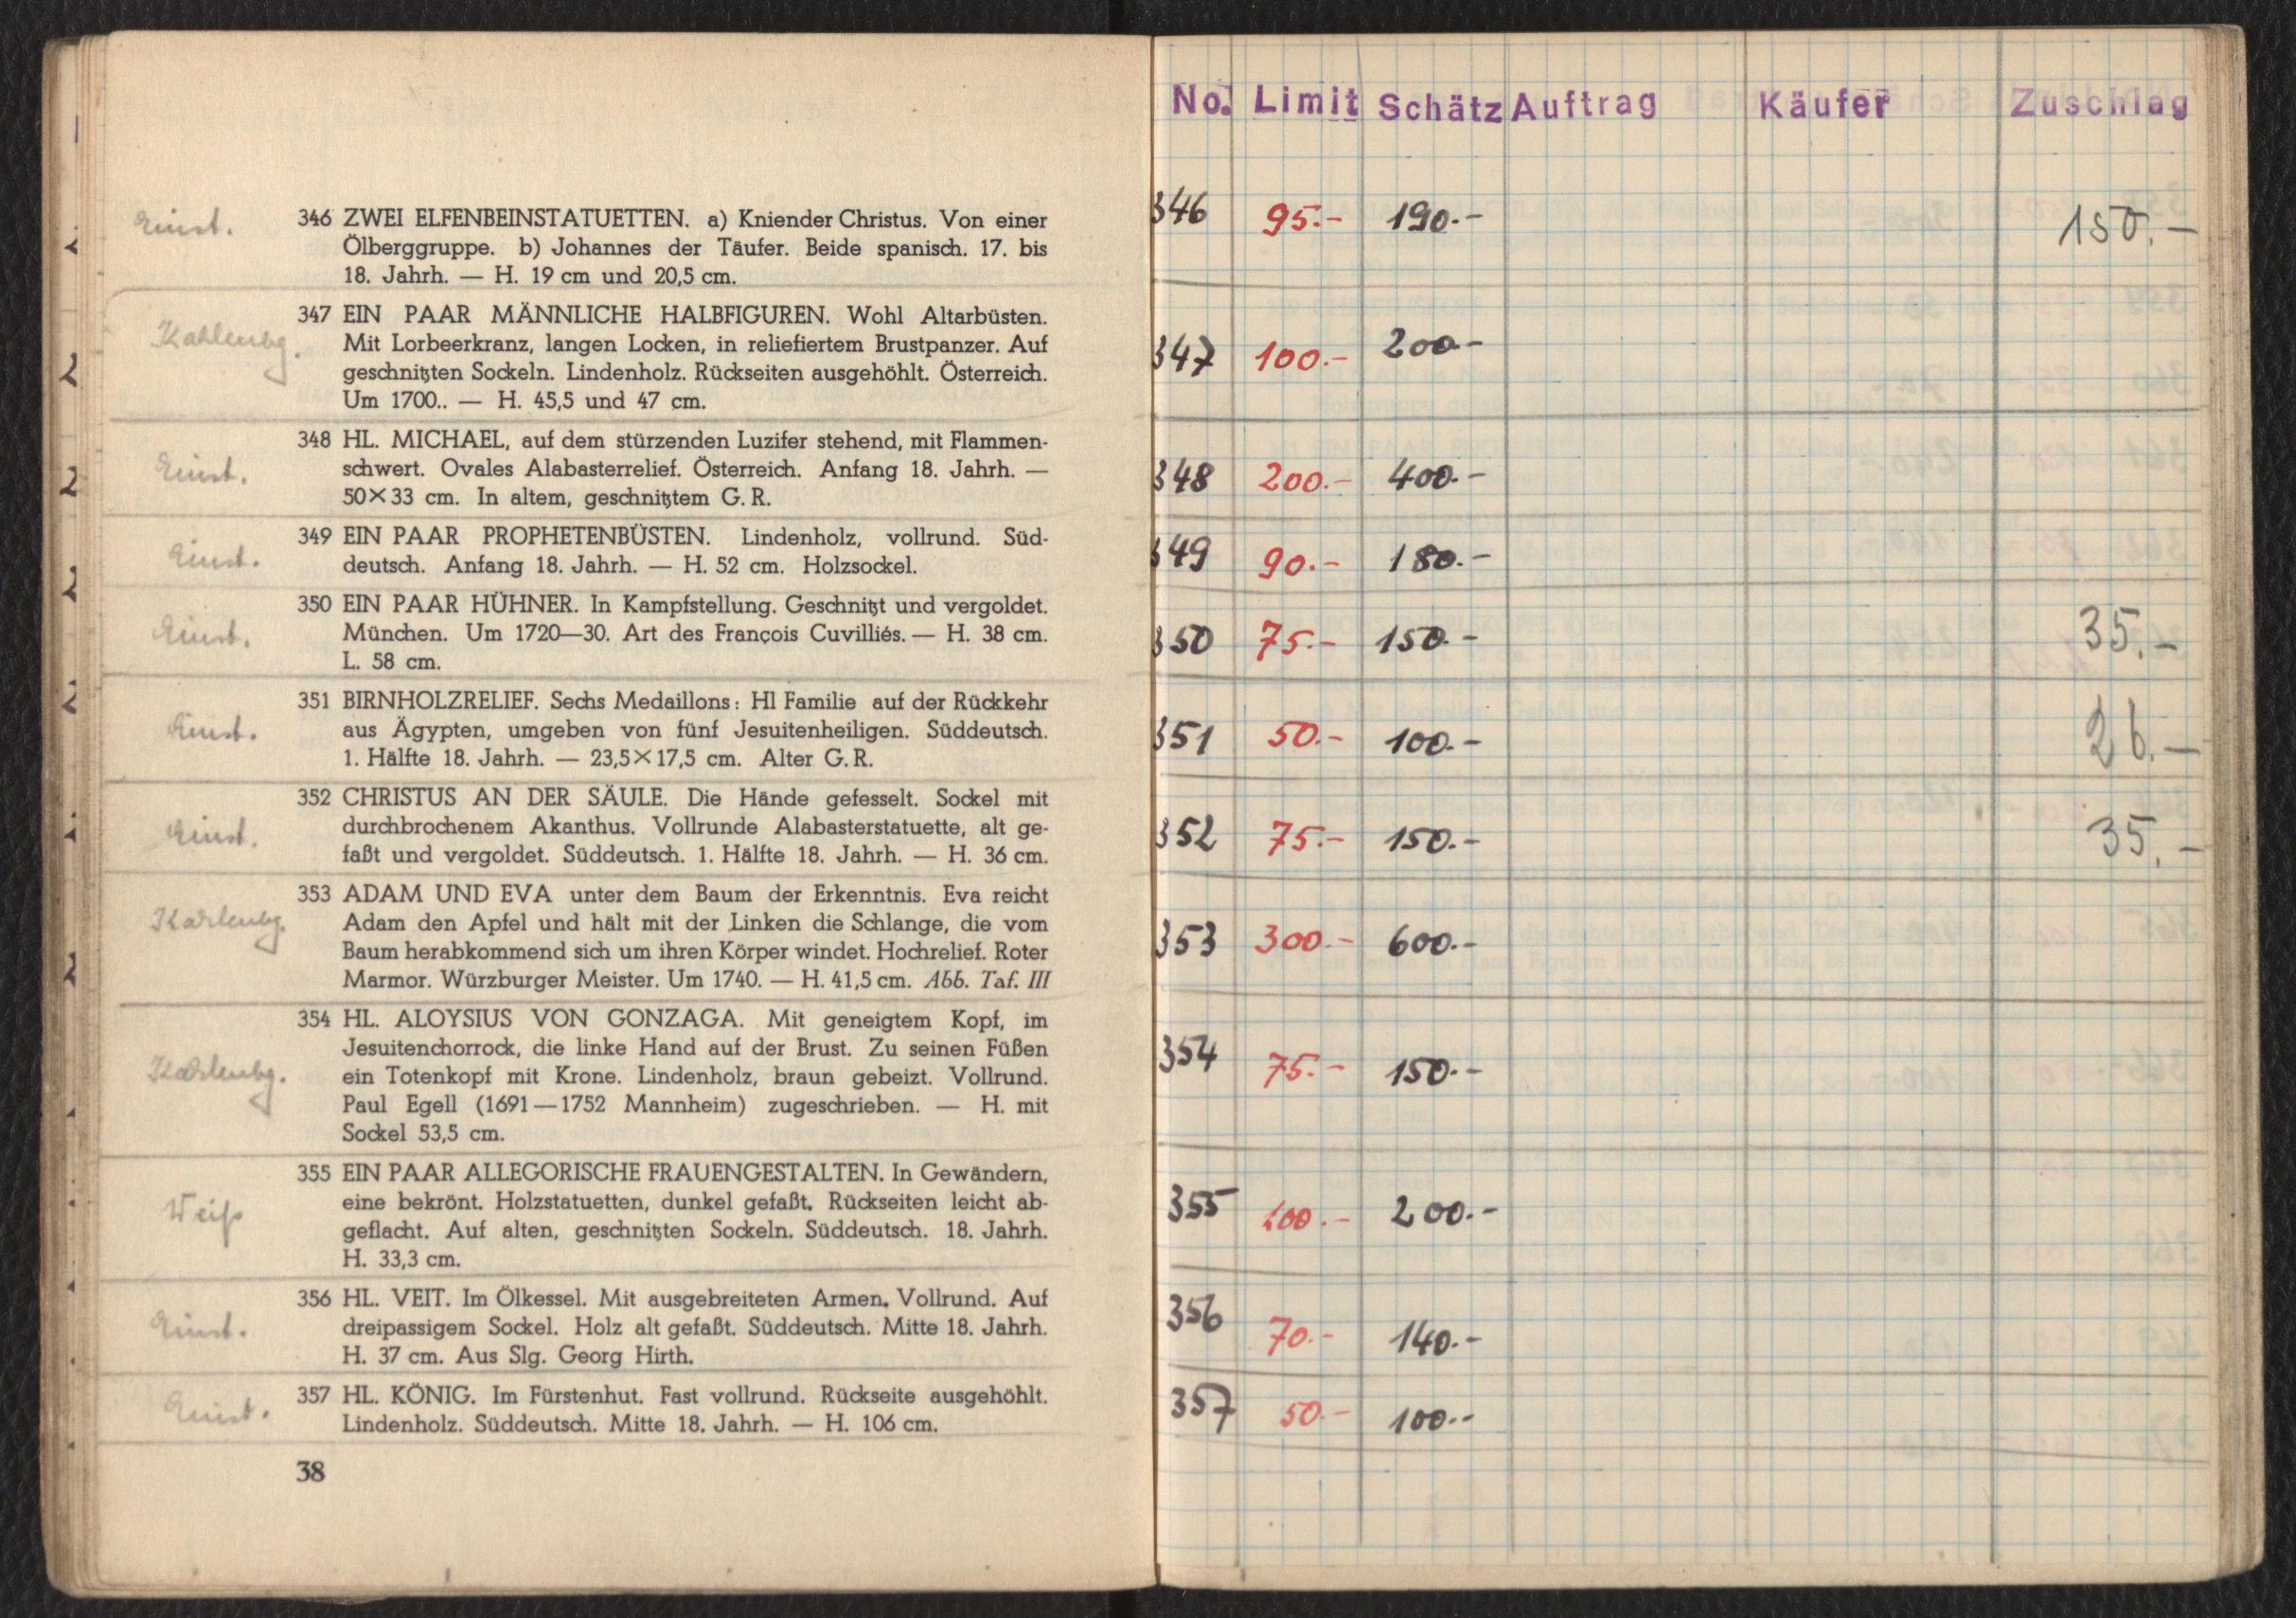 Einst. 346 ZWEI ELFENBEINSTATUETTEN. a) Kniender Christus. Von einer
Ölberggruppe. b) Johannes der Täufer. Beide spanisch. 17. bis
18. Jahrh. — H. 19 cm und 20,5 cm.
347 EIN PAAR MÄNNLICHE HALBFIGUREN. Wohl Altarbüsten.
Mit Lorbeerkranz, langen Locken, in reliefiertem Brustpanzer. Auf
geschnitzten Sockeln. Lindenholz. Rückseiten ausgehöhlt. Österreich.
Um 1700.. — H. 45,5 und 47 cm.
348 HL. MICHAEL, auf dem stürzenden Luzifer stehend, mit Flammen-
Einst. schwert. Ovales Alabasterrelief. Österreich. Anfang 18. Jahrh. —
50×33 cm. In altem, geschnitztem G. R.
349 EIN PAAR PROPHETENBÜSTEN. Lindenholz, vollrund. Süd-
Einst. deutsch. Anfang 18. Jahrh. — H. 52 cm. Holzsockel.
350 EIN PAAR HÜHNER. In Kampfstellung. Geschnitzt und vergoldet.
Einst. München. Um 1720—30. Art des François Cuvilliés. — H. 38 cm.
L. 58 cm.
351 BIRNHOLZRELIEF. Sechs Medaillons: Hl Familie auf der Rückkehr
Einst. aus Ägypten, umgeben von fünf Jesuitenheiligen. Süddeutsch.
1. Hälfte 18. Jahrh. — 23,5×17,5 cm. Alter G. R.
352 CHRISTUS AN DER SÄULE. Die Hände gefesselt. Sockel mit
Einst. durchbrochenem Akanthus. Vollrunde Alabasterstatuette, alt ge-
faßt und vergoldet. Süddeutsch. 1. Hälfte 18. Jahrh. — H. 36 cm.
353 ADAM UND EVA unter dem Baum der Erkenntnis. Eva reicht
Adam den Apfel und hält mit der Linken die Schlange, die vom
Baum herabkommend sich um ihren Körper windet. Hochrelief. Roter
Marmor. Würzburger Meister. Um 1740. — H. 41,5 cm. Abb. Taf. III
354 HL. ALOYSIUS VON GONZAGA. Mit geneigtem Kopf, im
Jesuitenchorrock, die linke Hand auf der Brust. Zu seinen Füßen
ein Totenkopf mit Krone. Lindenholz, braun gebeizt. Vollrund.
Paul Egell (1691—1752 Mannheim) zugeschrieben. — H. mit
Sockel 53,5 cm.
355 EIN PAAR ALLEGORISCHE FRAUENGESTALTEN. In Gewändern,
Weiß eine bekrönt. Holzstatuetten, dunkel gefaßt. Rückseiten leicht ab-
geflacht. Auf alten, geschnitzten Sockeln. Süddeutsch. 18. Jahrh.
H. 33,3 cm.
356 HL. VEIT. Im Ölkessel. Mit ausgebreiteten Armen. Vollrund. Auf
Einst. dreipassigem Sockel. Holz alt gefaßt. Süddeutsch. Mitte 18. Jahrh.
H. 37 cm. Aus Slg. Georg Hirth.
357 HL. KÖNIG. Im Fürstenhut. Fast vollrund. Rückseite ausgehöhlt.
Einst. Lindenholz. Süddeutsch. Mitte 18. Jahrh. — H. 106 cm.
38
No. Limit Schätz Auftrag Käufer Zuschlag
346 95.- 190.- 150.-
347 100.- 200.-
348 200.- 400.-
349 90.- 180.-
350 75.- 150.- 35.-
351 50.- 100.- 26.-
352 75.- 150.- 35.-
353 300.- 600.-
354 75.- 150.-
355 100.- 200.-
356 70.- 140.-
357 50.- 100.-